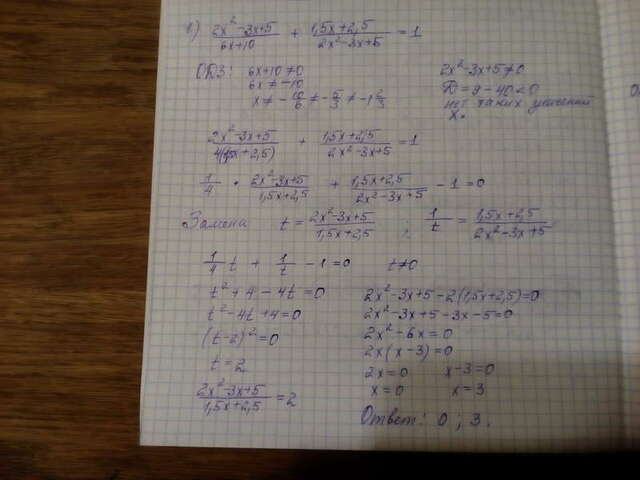 1) (2x²-3x+5)/(6x+10) + (1,5x+2,5)/(2x²-3x+5) = 1
ОДЗ: 6x+10≠0
6x≠-10
x≠-10/6≠-5/3≠-1 2/3
2x²-3x+5≠0
D=9-40<0
нет таких значений
x.
(2x²-3x+5)/(4(1,5x+2,5)) + (1,5x+2,5)/(2x²-3x+5) = 1
1/4 • (2x²-3x+5)/(1,5x+2,5) + (1,5x+2,5)/(2x²-3x+5) - 1 = 0
Замена t = (2x²-3x+5)/(1,5x+2,5) ; 1/t = (1,5x+2,5)/(2x²-3x+5)
1/4 t + 1/t - 1 = 0 t≠0
t²+4-4t=0
t²-4t+4=0
(t-2)²=0
t=2
(2x²-3x+5)/(1,5x+2,5) = 2
2x²-3x+5-2(1,5x+2,5)=0
2x²-3x+5-3x-5=0
2x²-6x=0
2x(x-3)=0
2x=0 x-3=0
x=0 x=3
Ответ: 0 ; 3.